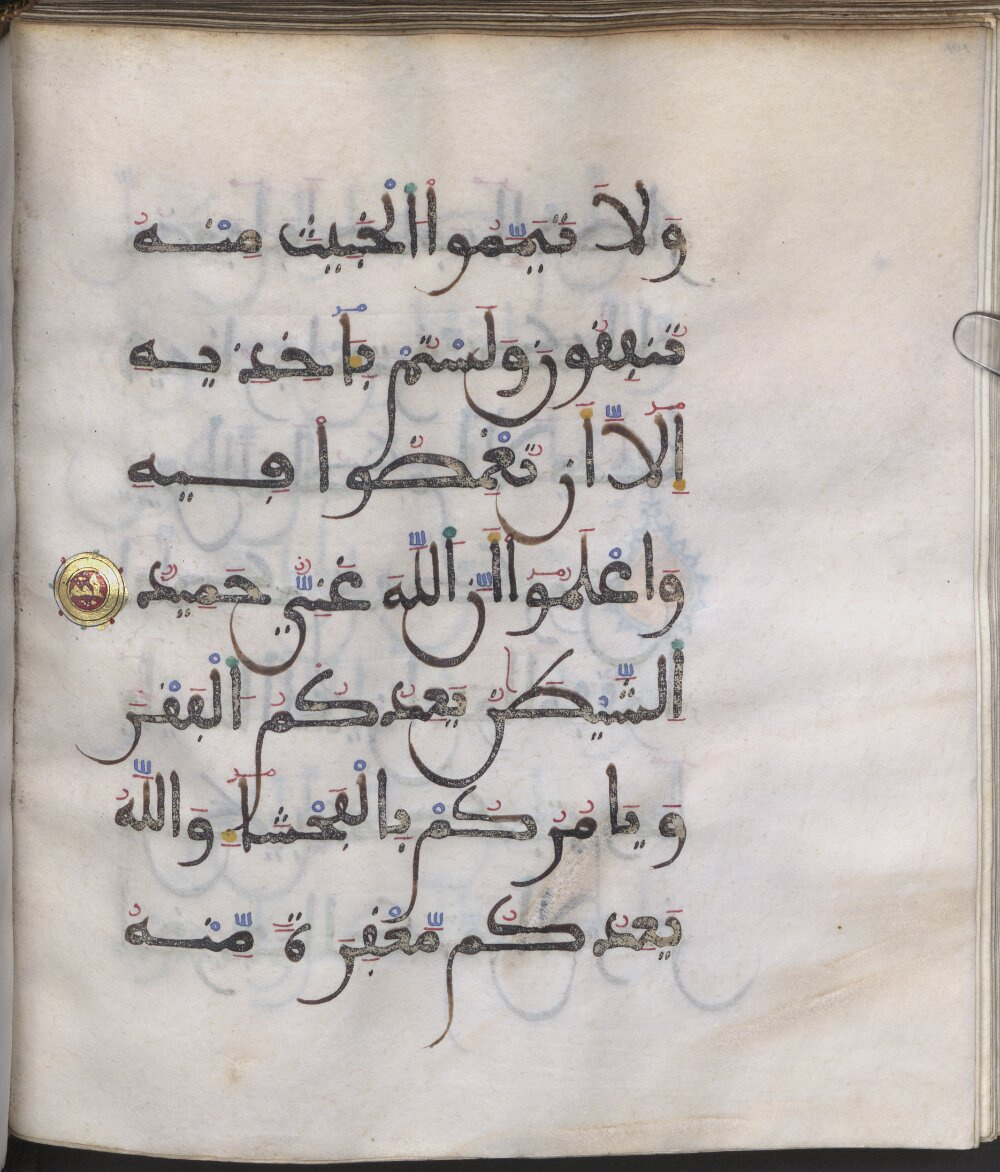 وَلَا تَيَمَّمُوا الْخَبِيثَ مِنْهُ
تُنفِقُونَ وَلَسْتُمْ بِـَٔاخِذِيهِ
إِلَّا أَن تُغْمِضُوا فِيهِ
وَاعْلَمُوا أَنَّ اللَّهَ غَنِيٌّ حَمِيدٌ
الشَّيْطَٰنُ يَعِدُكُمُ الْفَقْرَ
وَيَأْمُرُكُمْ بِالْفَحْشَاءِ وَاللَّهُ
يَعِدُكُم مَّغْفِرَةً مِّنْهُ